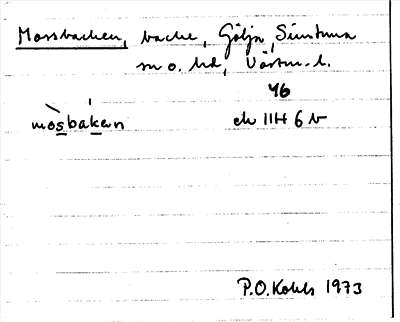 Mossbacken, backe, Gölja, Simtuna
sn o. hd, Västm. l.
46
mosbaken ek 11H 6 b
P.O. Kohls 1973